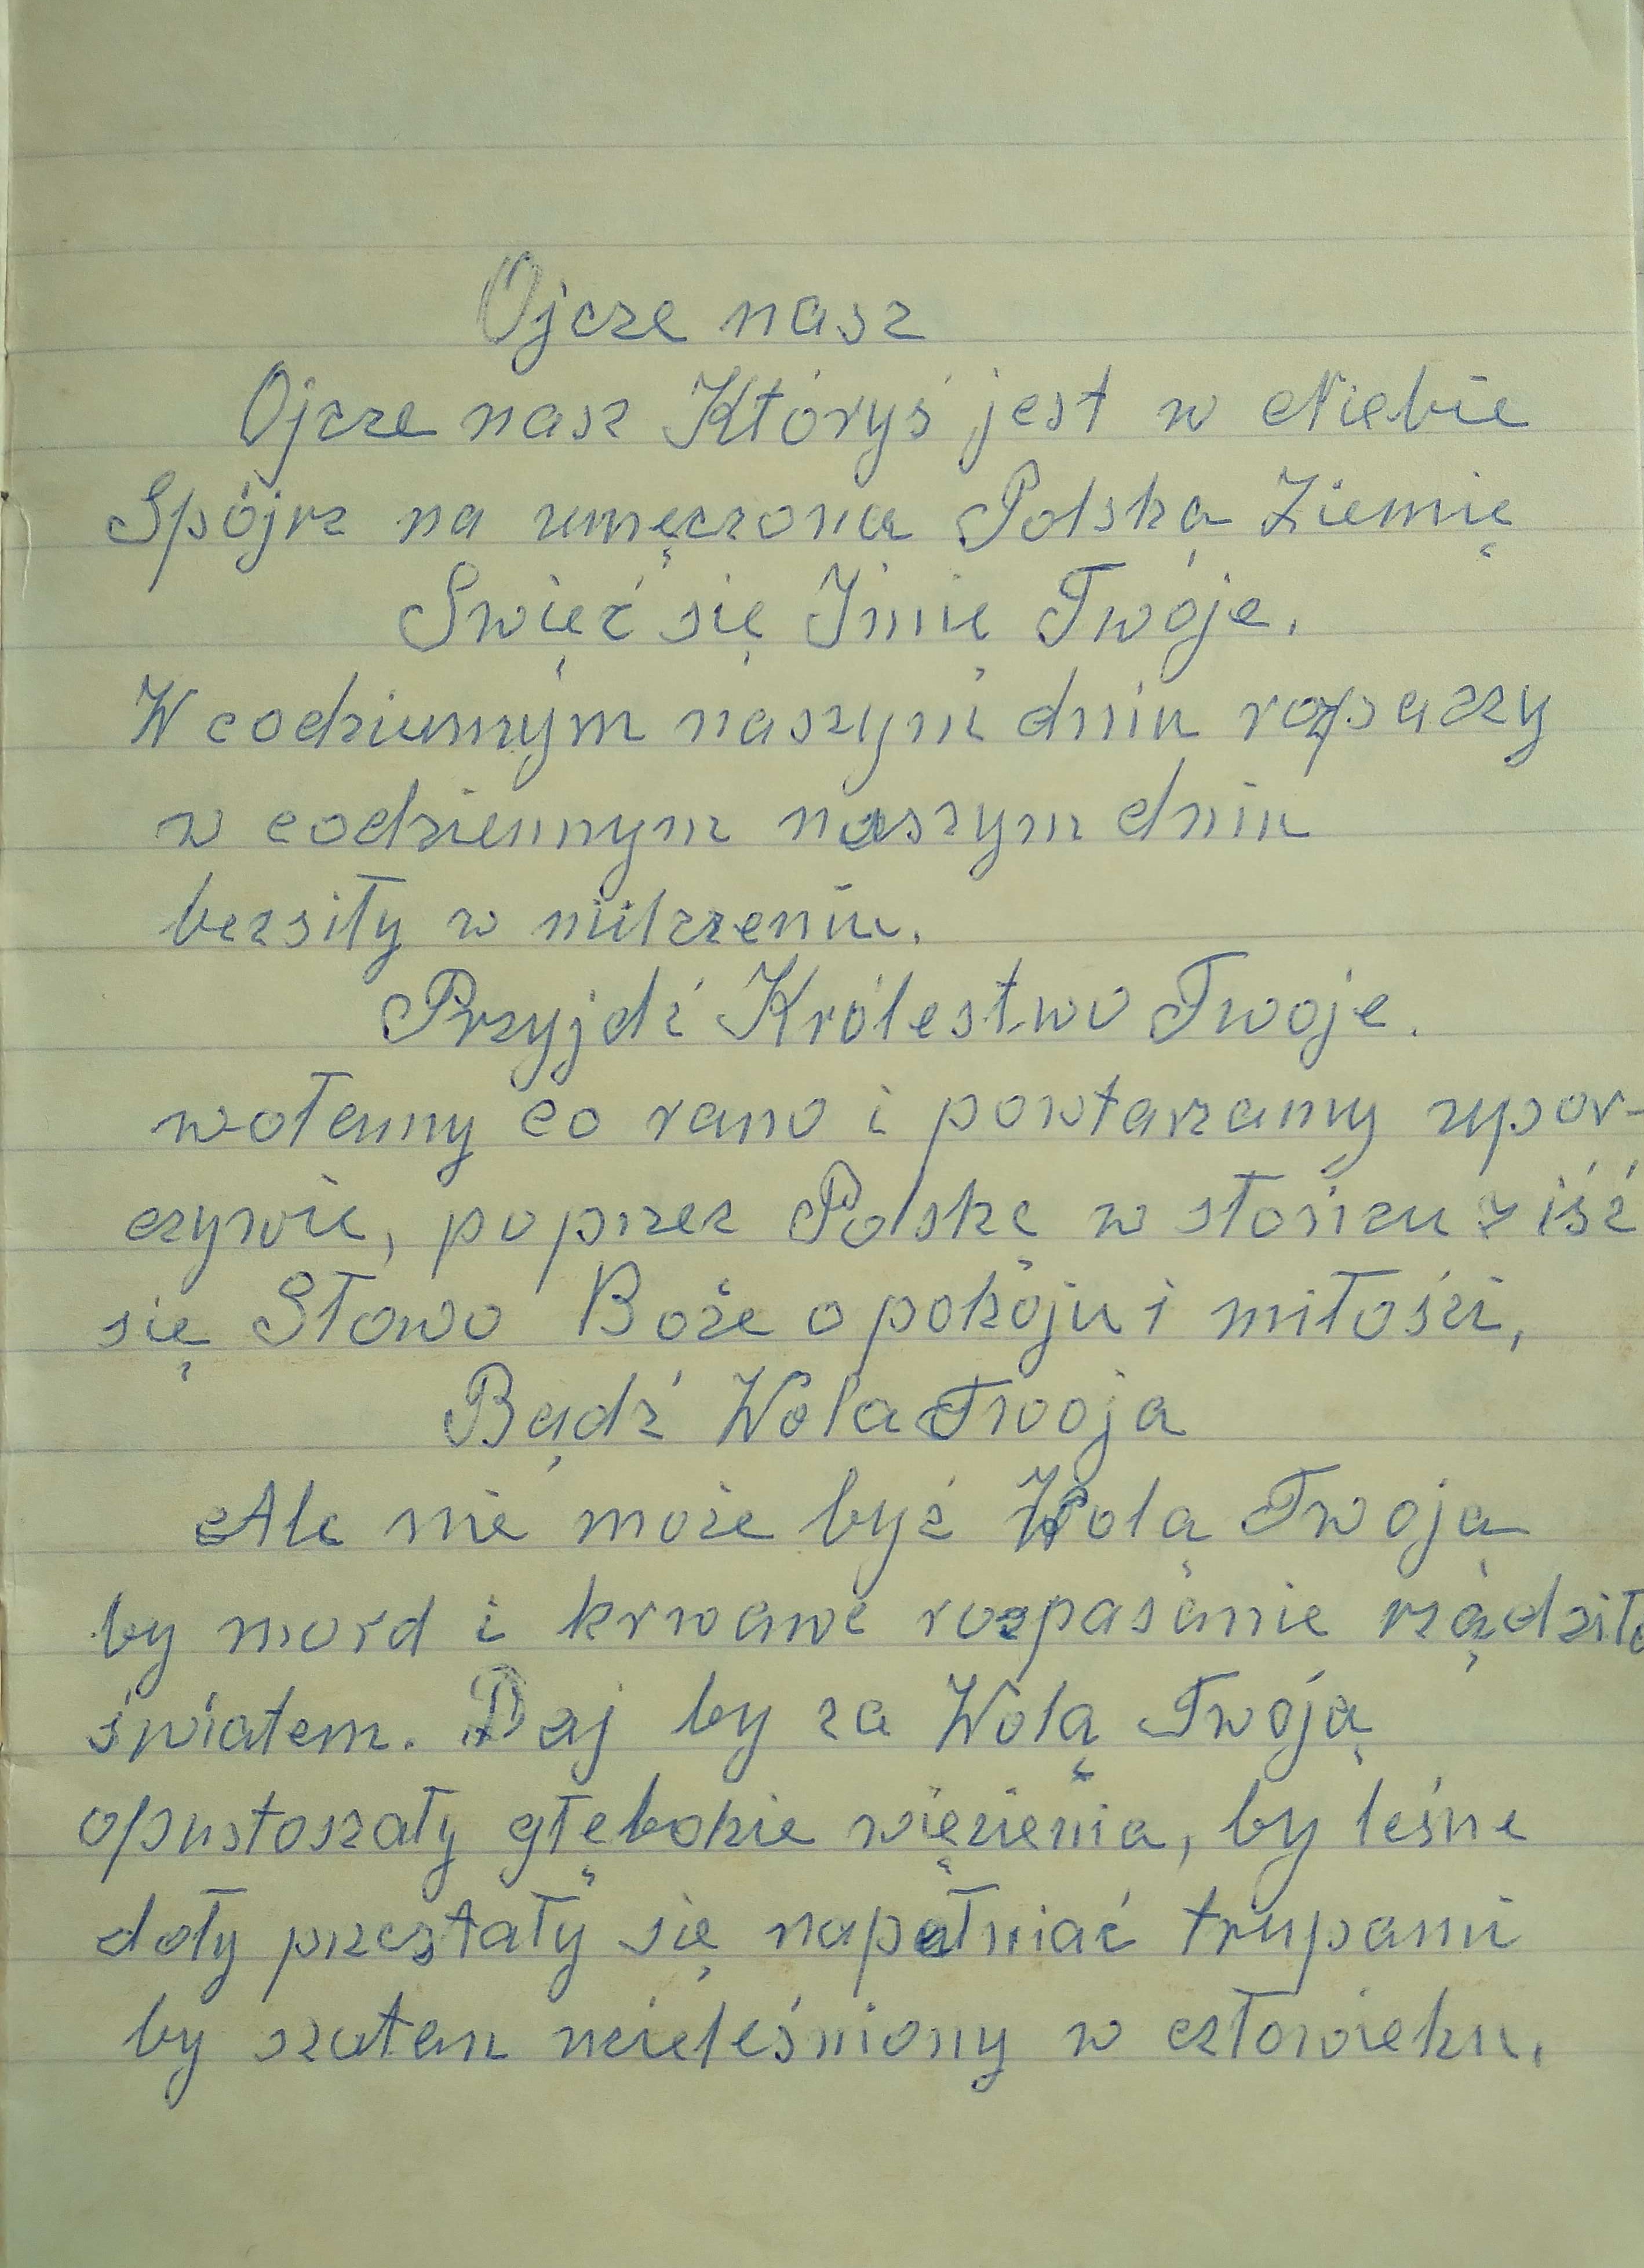 Ojcze nasz
Ojcze nasz Któryś jest w Niebie
Spójrz na umęczona Polską Ziemię
Swięć się Imię Twoje.
W codziennym naszym dniu rozpaczy
w codziennym naszym dniu
bezsiły w milczeniu.
Przyjdź Królestwo Twoje.
wołamy co rano i powtarzamy upor-
czywie, poprzez Polskę w słońcu ziść
się Słowo Boże o pokoju i miłości,
Bądź Wola Twoja
Ale nie może być Wolą Twoja
by mord i krwawe rozpasanie rządziło
światem. Daj by za Wolą Twoją
opustoszały głębokie więzienia, by leśne
doły przestały się napełniać trupami
by szatan ucieleśniony w człowieku,